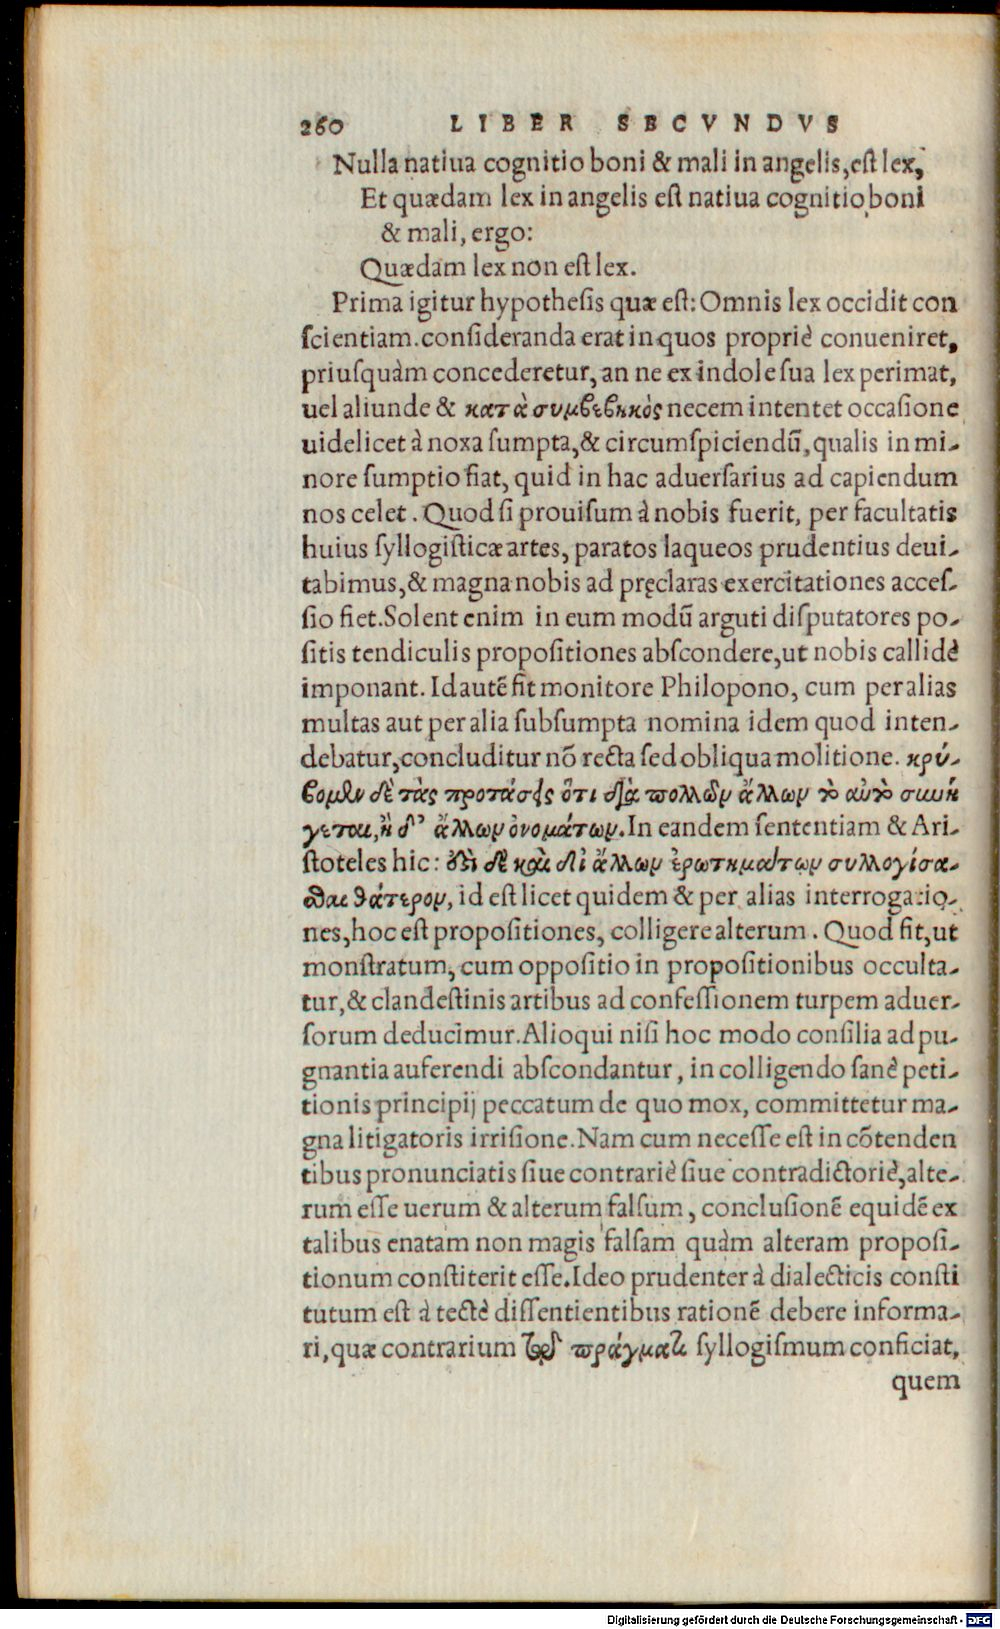 260 LIBER SECVNDVS
Nulla natiua cognitio boni & mali in angelis, est lex,
Et quædam lex in angelis est natiua cognitio boni
& mali, ergo:
Quædam lex non est lex.
Prima igitur hypothesis quæ est: Omnis lex occidit con
scientiam. consideranda erat in quos propriè conueniret,
priusquàm concederetur, an ne ex indole sua lex perimat,
uel aliunde & κατὰ συμβεβηκὸς necem intentet occasione
uidelicet à noxa sumpta, & circumspiciendū, qualis in mi-
nore sumptio fiat, quid in hac aduersarius ad capiendum
nos celet. Quod si prouisum à nobis fuerit, per facultatis
huius syllogisticæ artes, paratos laqueos prudentius deui-
tabimus, & magna nobis ad pręclaras exercitationes acces-
sio fiet. Solent enim in eum modū arguti disputatores po-
sitis tendiculis propositiones abscondere, ut nobis callidè
imponant. Id autē fit monitore Philopono, cum per alias
multas aut per alia subsumpta nomina idem quod inten-
debatur, concluditur nō recta sed obliqua molitione. κρύ-
βομεν δὲ τὰς προτάσεις ὅτι διὰ πολλῶν ἄλλων τὸ αὐτὸ συνή
γεται, ἢ δι' ἄλλων ὀνομάτων. In eandem sententiam & Ari-
stoteles hic: ἔστι δὲ καὶ δι' ἄλλων ἐρωτημάτων συλλογίσα-
σθαι θάτερον, id est licet quidem & per alias interrogatio-
nes, hoc est propositiones, colligere alterum. Quod fit, ut
monstratum, cum oppositio in propositionibus occulta-
tur, & clandestinis artibus ad confessionem turpem aduer-
sorum deducimur. Alioqui nisi hoc modo consilia ad pu-
gnantia auferendi abscondantur, in colligendo sanè peti-
tionis principij peccatum de quo mox, committetur ma-
gna litigatoris irrisione. Nam cum necesse est in cōtenden
tibus pronunciatis siue contrariè siue contradictoriè, alte-
rum esse uerum & alterum falsum, conclusionē equidē ex
talibus enatam non magis falsam quàm alteram proposi-
tionum constiterit esse. Ideo prudenter à dialecticis consti
tutum est à tectè dissentientibus rationē debere informa-
ri, quæ contrarium τῷ πράγματι syllogismum conficiat,
quem
Digitalisierung gefördert durch die Deutsche Forschungsgemeinschaft - DFG